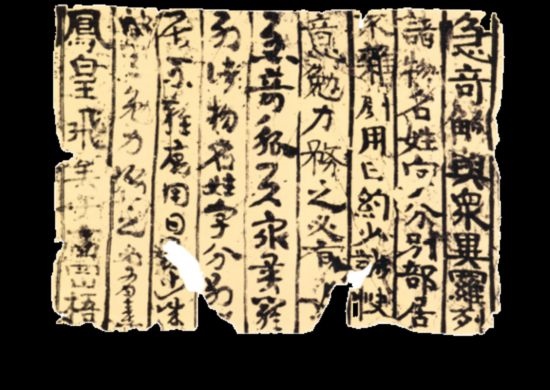 急奇觚與衆異羅列
諸物名姓字分別部居
不雜廁用日約少誠快
意勉力務之必有
急奇觚與衆異羅
列諸物名姓字分別
居不雜廁用日
勉力務之必有
鳳皇飛梧